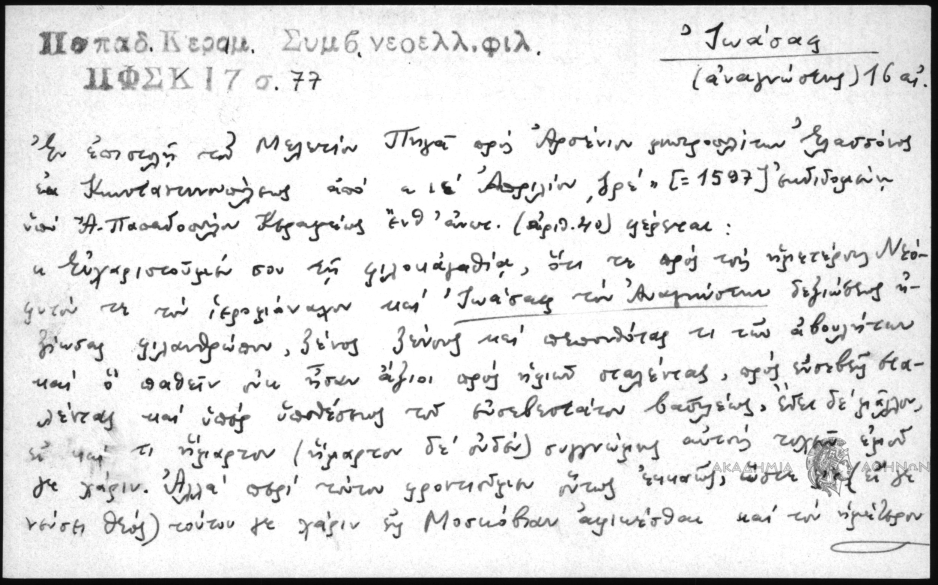 Παπαδ. Κεραμ. Συμβ. νεοελλ. φιλ.
ΠΦΣΚ 17 σ. 77
Ἰωάσαφ
(ἀναγνώστης) 16 αἰ.
Ἐν ἐπιστολῇ τοῦ Μελετίου Πηγᾶ πρὸς Ἀρσένιον μητροπολίτην Ἐλασσόνος
ἐκ Κωνσταντινουπόλεως ἀπὸ « ιε' Ἀπριλίου, ͵ζρε' » [=1597] ἐκδιδομένῃ
ὑπὸ Ἀ. Παπαδοπούλου Κεραμέως ἔνθ' ἀνωτ. (ἀριθ. 40) φέρεται:
« Εὐχαριστοῦμέν σου τῇ φιλοκἀγαθίᾳ, ὅτι τε πρὸς τοὺς ἡμετέρους Νεό-
φυτόν τε τὸν ἱερομόναχον καὶ Ἰωάσαφ τὸν Ἀναγνώστην δεξιώσεως ἠ-
ξίωσας φιλανθρώπου, ξένος ξένους καὶ πεπονθότας τι τῶν ἀβουλήτων
καὶ ὃ παθεῖν οὐκ ἦσαν ἄξιοι πρὸς ἡμῶν σταλέντας, πρὸς εὐσεβεῖς στα-
λέντας καὶ ὑπὲρ ὑποθέσεως τοῦ εὐσεβεστάτου βασιλέως, ἔδει δὲ μᾶλλον,
εἰ καί τι ἥμαρτον (ἥμαρτον δὲ οὐδέν) συγγνώμης αὐτοὺς τυχεῖν ἐμοῦ
γε χάριν. Ἀλλὰ περὶ τούτου φροντιοῦμεν οὕτως, ὥστε (εἴ γε
νεύσει θεός) τούτου γε χάριν εἰς Μοσκόβιαν ἀφικέσθαι καὶ τὸν ἡμέτερον
ΑΚΑΔΗΜΙΑ ΑΘΗΝΩΝ